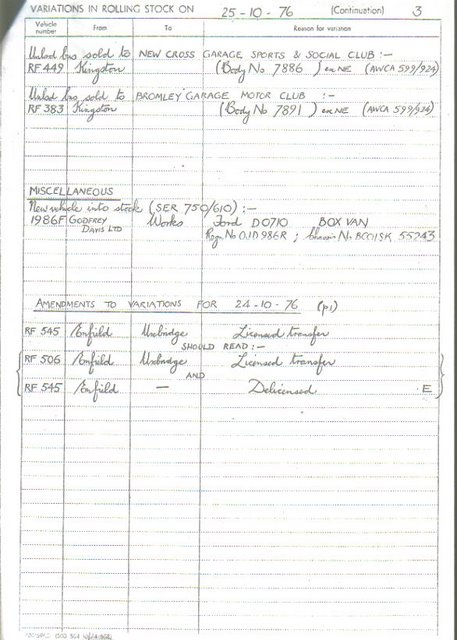 VARIATIONS IN ROLLING STOCK ON 25-10-76 (Continuation) 3
Vehicle number From To Reason for variation
Unlcd bus sold to NEW CROSS GARAGE SPORTS & SOCIAL CLUB :-
RF 449 Kingston (Body No 7886 ) ex NE (AWCA 599/924)
Unlcd bus sold to BROMLEY GARAGE MOTOR CLUB :-
RF 383 Kingston (Body No 7891 ) ex NE (AWCA 599/924)
MISCELLANEOUS
New vehicle into stock (SER 750/610) :-
1986F GODFREY DAVIS LTD Works Ford D0710 BOX VAN
Regn. No OJD 986R ; Chassis No. BCO1SK 55243
AMENDMENTS TO VARIATIONS FOR 24-10-76 (p1)
RF 545 Enfield Uxbridge Licensed transfer
SHOULD READ :-
RF 506 Enfield Uxbridge Licensed transfer
AND
RF 545 Enfield — Delicensed E